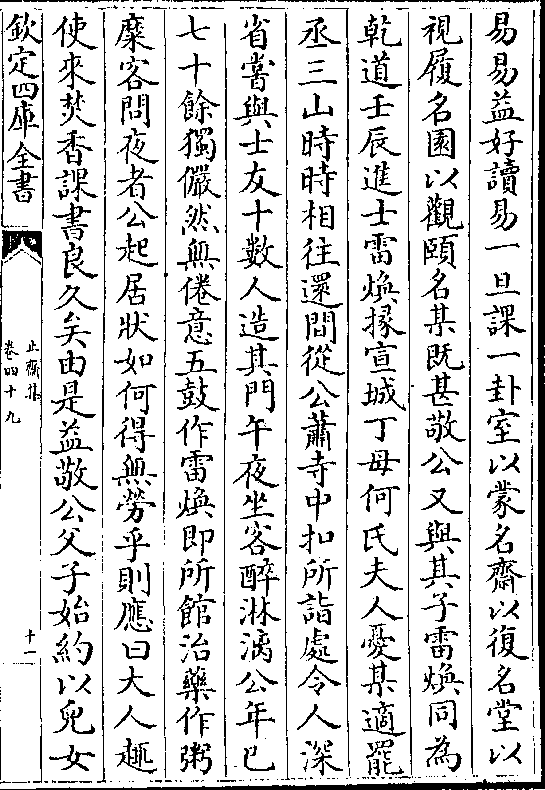 易易益好讀易一旦課一卦室以蒙名齋以復名堂以
視履名園以觀頤名某既甚敬公又與其子雷煥同為
乾道壬辰進士雷煥掾宣城丁母何氏夫人憂某適罷
丞三山時時相往還間從公蕭寺中扣所詣處令人深
省嘗與士友十數人造其門午夜坐客醉淋漓公年已
七十餘獨儼然無倦意五鼓作雷煥即所館治藥作粥
糜客問夜者公起居狀如何得無勞乎則應曰大人趣
使來焚香課書良久矣由是益敬公父子始約以兒女
欽定四庫全書
止齋集
卷四十九
十一